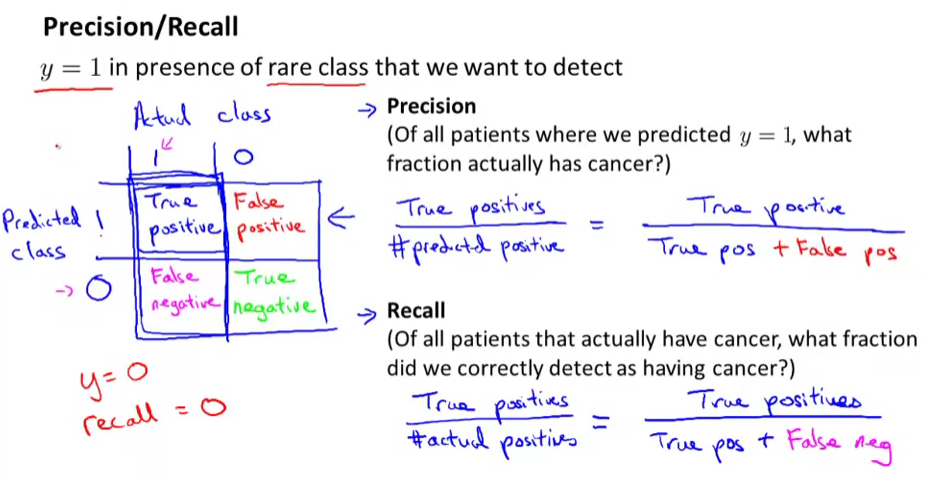 Precision/Recall
y = 1 in presence of rare class that we want to detect
Actual class
1 0
Predicted class
1
True positive
False positive
0
False negative
True negative
y = 0
recall = 0
→ Precision
(Of all patients where we predicted y = 1, what
fraction actually has cancer?)
True positives
#predicted positive
=
True positive
True pos + False pos
→ Recall
(Of all patients that actually have cancer, what fraction
did we correctly detect as having cancer?)
True positives
#actual positives
=
True positives
True pos + False neg